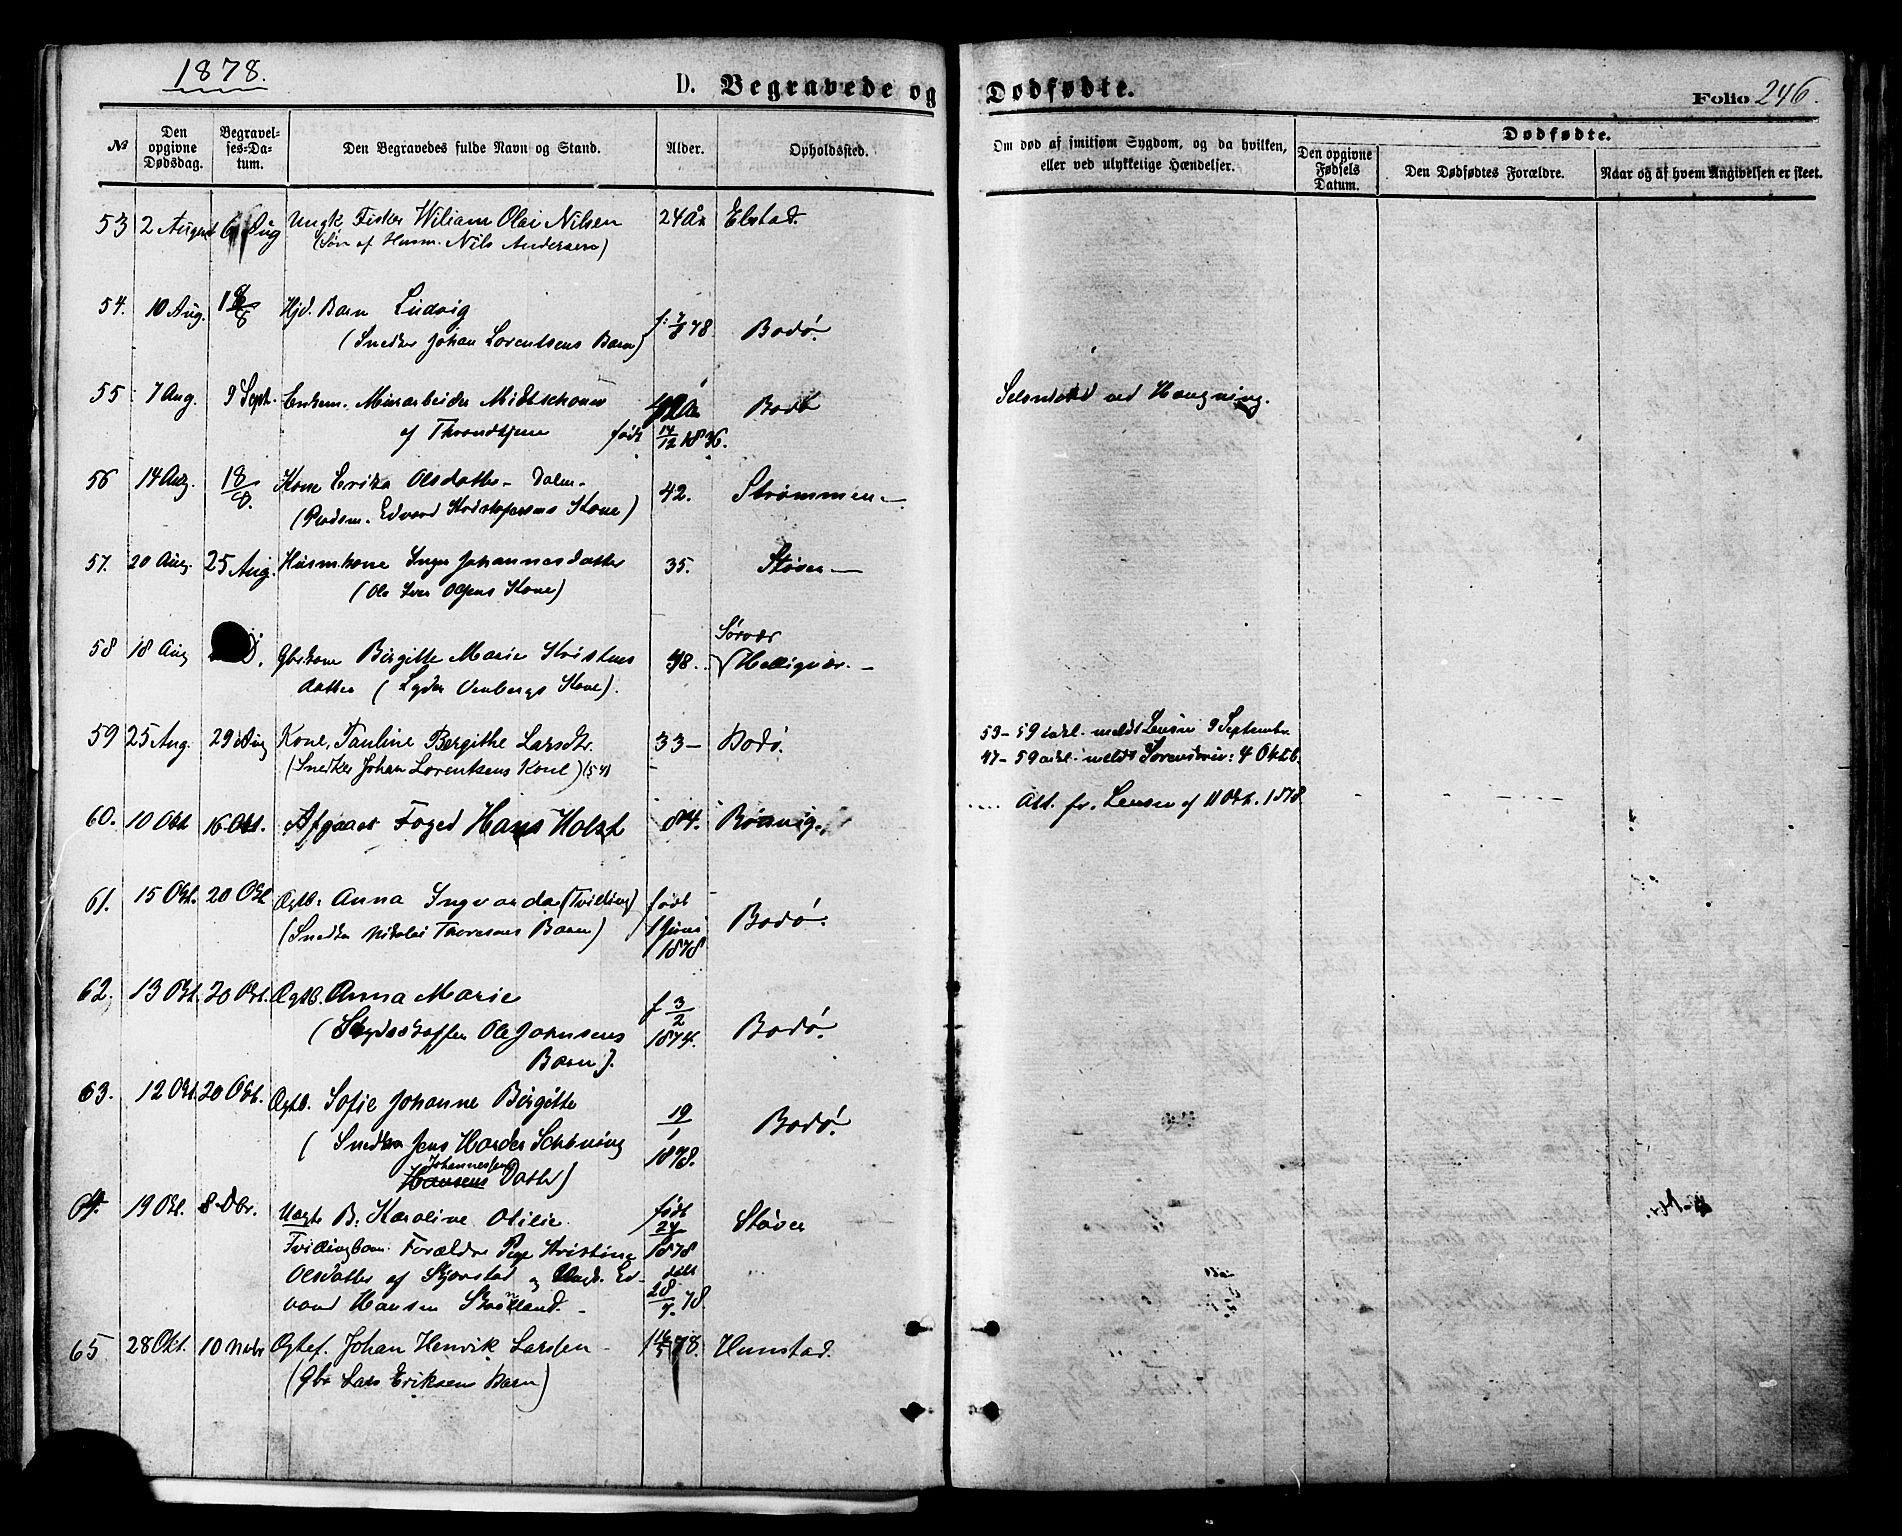 1878.
D. Begravede og Dødfødte.
Folio 246.
No
Den opgivne Dødsdag.
Begravelses-Datum.
Den Begravedes fulde Navn og Stand.
Alder.
Opholdssted.
Om død af smitsom Sygdom, og da hvilken, eller ved ulykkelige Hændelser.
Dødfødte.
Den opgivne Fødsels Datum.
Den Dødfødtes Forældre.
Naar og af hvem Angivelsen er skeet.
53 2 August 6 Aug Ungk. Fisker Wiliam Olai Nilsen 24 Aar Elstad.
(Søn af Husm. Nils Andersen)
54. 10 Aug. 18/8 Hjd. Barn Ludvig
(Snedker Johan Lorentsens Barn) f: 7/8 78 Bodø.
55 7 Aug. 9 Sept. Enkem. Murarbeider Bodø Selvmord ved Hængning.
af Throndhjem født 14/12 1836.
56 14 Aug. 18/8. Kone Erika Olsdatter 42. Strømmen
(Pladsm. Edvard Kristofersens Kone)
57. 20 Aug. 25 Aug. Husm.kone Inger Johannesdatter 35. Støver
(Ole Iver Olsens Kone)
58 18 Aug Gbr.kone Birgitte Marie Kristens 48. Sørvær
datter (Lyder Kone). Helligvær.
59 25 Aug. 29 Aug Kone, Pauline Bergithe Larsdtr. 33 Bodø.
(Snedker Johan Lorentsens Kone) (54)
53-59 inkl. meldt Lensm 9 September
47-59 inkl. meldt : 4 Oktb.
Att. fr. Lensm af 11 Okt. 1878
60. 10 Okt 16 Okt. Afgaaet Foged Hans Holst 84. Rønvig.
61. 15 Okt. 20 Okt Ægtb. Anna Ingvarda (Tvilling) født
(Snedker Nikolai Thoresens Barn) 1 Juni 1878 Bodø.
62. 13 Okt. 20 Okt. Ægtb. Anna Marie f 3/2
( Ole Johnsens 1874. Bodø.
Barn).
63. 12 Okt. 20 Okt. Ægtb. Sofie Johanne Birgitte 19/1
(Snedker Jens Harder Schøning 1878. Bodø.
Johannessens
Hansens Datter)
64. 19 Okt. 8 Dbr. Uægte B. Karoline Otilie født Støver
Tvillingbarn. Forældre Pige Kristine 1878
Olsdatter af og Ungk. Ed- døbt
vard Hansen 28/7. 78.
65 28 Okt. 10 Nvbr Ægtef. Johan Henrik Larssen f 16/5 78. Hunstad.
(Gbr Lars Eriksens Barn)